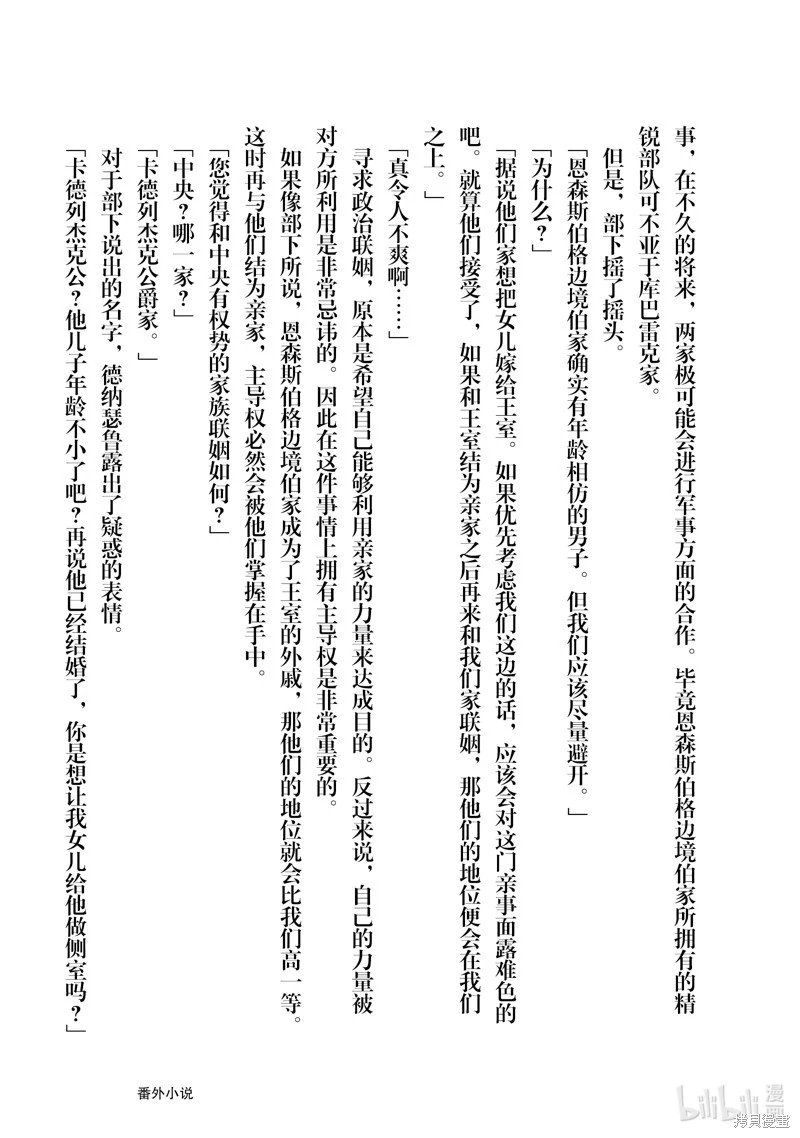 事，在不久的将来，两家极可能会进行军事方面的合作。毕竟恩森斯伯格边境伯家所拥有的精
锐部队可不亚于库巴雷克家。
但是，部下摇了摇头。
「恩森斯伯格边境伯家确实有年龄相仿的男子。但我们应该尽量避开。」
「为什么？」
「据说他们家想把女儿嫁给王室。如果优先考虑我们这边的话，应该会对这门亲事面露难色的
吧。就算他们接受了，如果和王室结为亲家之后再来和我们家联姻，那他们的地位便会在我们
之上。」
「真令人不爽啊……」
寻求政治联姻，原本是希望自己能够利用亲家的力量来达成目的。反过来说，自己的力量被
对方所利用是非常忌讳的。因此在这件事情上拥有主导权是非常重要的。
如果像部下所说，恩森斯伯格边境伯家成为了王室的外戚，那他们的地位就会比我们高一等。
这时再与他们结为亲家，主导权必然会被他们掌握在手中。
「您觉得和中央有权势的家族联姻如何？」
「中央？哪一家？」
「卡德列杰克公爵家。」
对于部下说出的名字，德纳瑟鲁露出了疑惑的表情。
「卡德列杰克公？他儿子年龄不小了吧？再说他已经结婚了，你是想让我女儿给他做侧室吗？」
番外小说
bilibili 漫画
拷贝漫畫